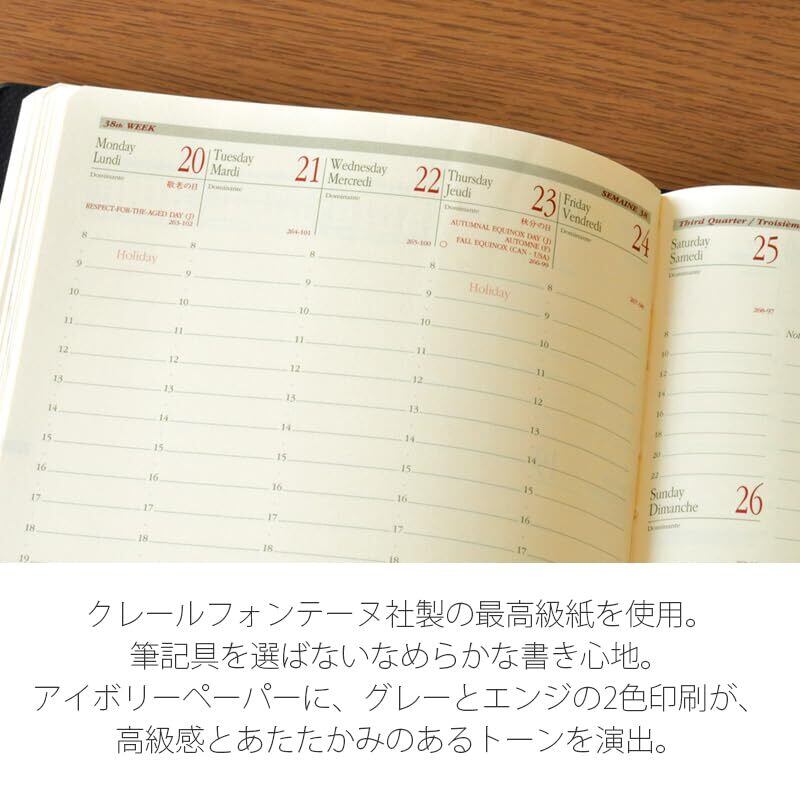 38th WEEK
SEMAINE 38
Monday
Lundi
20
Dominante
敬老の日
RESPECT-FOR-THE-AGED DAY (J)
263-102
Tuesday
Mardi
21
Dominante
264-101
Wednesday
Mercredi
22
Dominante
265-100
Thursday
Jeudi
23
Dominante
秋分の日
AUTUMNAL EQUINOX DAY (J)
AUTOMNE (F)
FALL EQUINOX (CAN - USA)
266-99
Friday
Vendredi
24
Dominante
8
Holiday
10
11
12
13
14
15
16
17
18
19
8
9
10
11
12
13
14
15
16
17
18
8
9
10
11
12
13
14
15
16
17
18
8
9
10
11
12
13
14
15
16
17
18
8
9
Holiday
10
11
12
13
14
15
16
17
Third Quarter / Troisiem
Saturday
Samedi
25
Dominante
268-97
8
10
12
14
16
18
20
22
Sunday
Dimanche
26
Dominante
クレールフォンテーヌ社製の最高級紙を使用。
筆記具を選ばないなめらかな書き心地。
アイボリーペーパーに、グレーとエンジの2色印刷が、
高級感とあたたかみのあるトーンを演出。